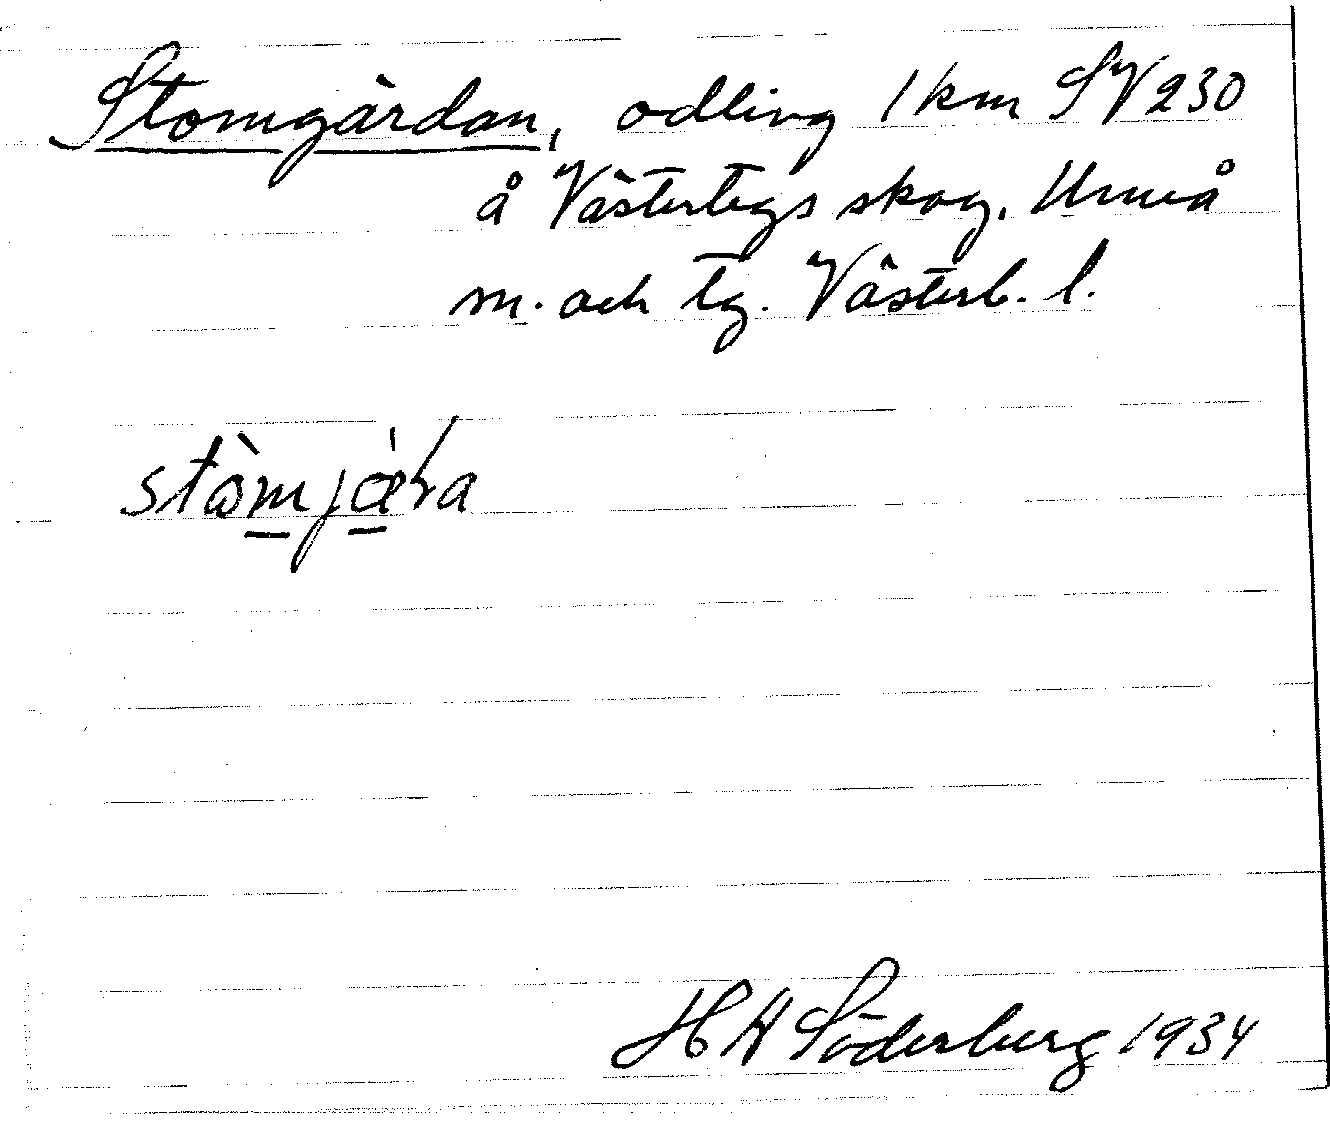 Stomgärdan, odling 1 km SV 230
å Västertegs skog, Umeå
m. och tg. Västerb. l.
H A Söderberg 1934